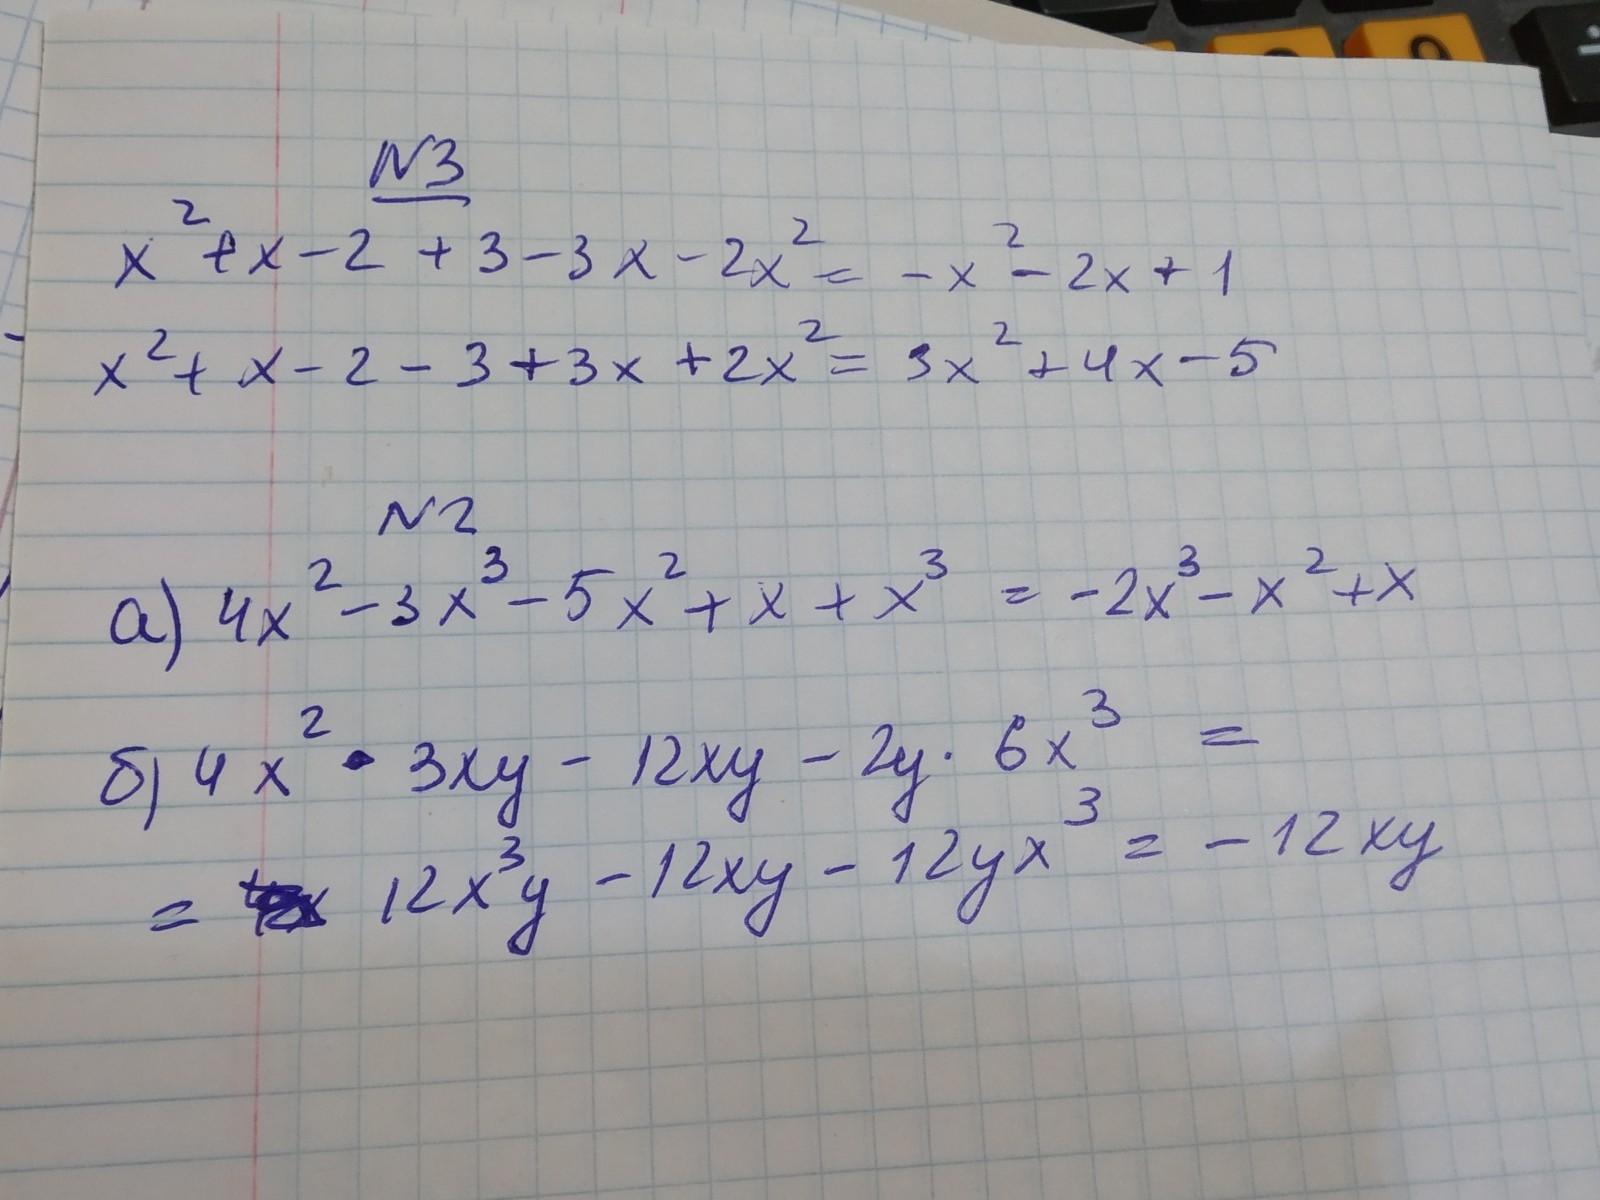 N3
x² + x - 2 + 3 - 3x - 2x² = - x² - 2x + 1
x² + x - 2 - 3 + 3x + 2x² = 3x² + 4x - 5
N2
а) 4x² - 3x³ - 5x² + x + x³ = -2x³ - x² + x
б) 4x² · 3xy - 12xy - 2y · 6x³ =
= 12x³y - 12xy - 12yx³ = - 12xy